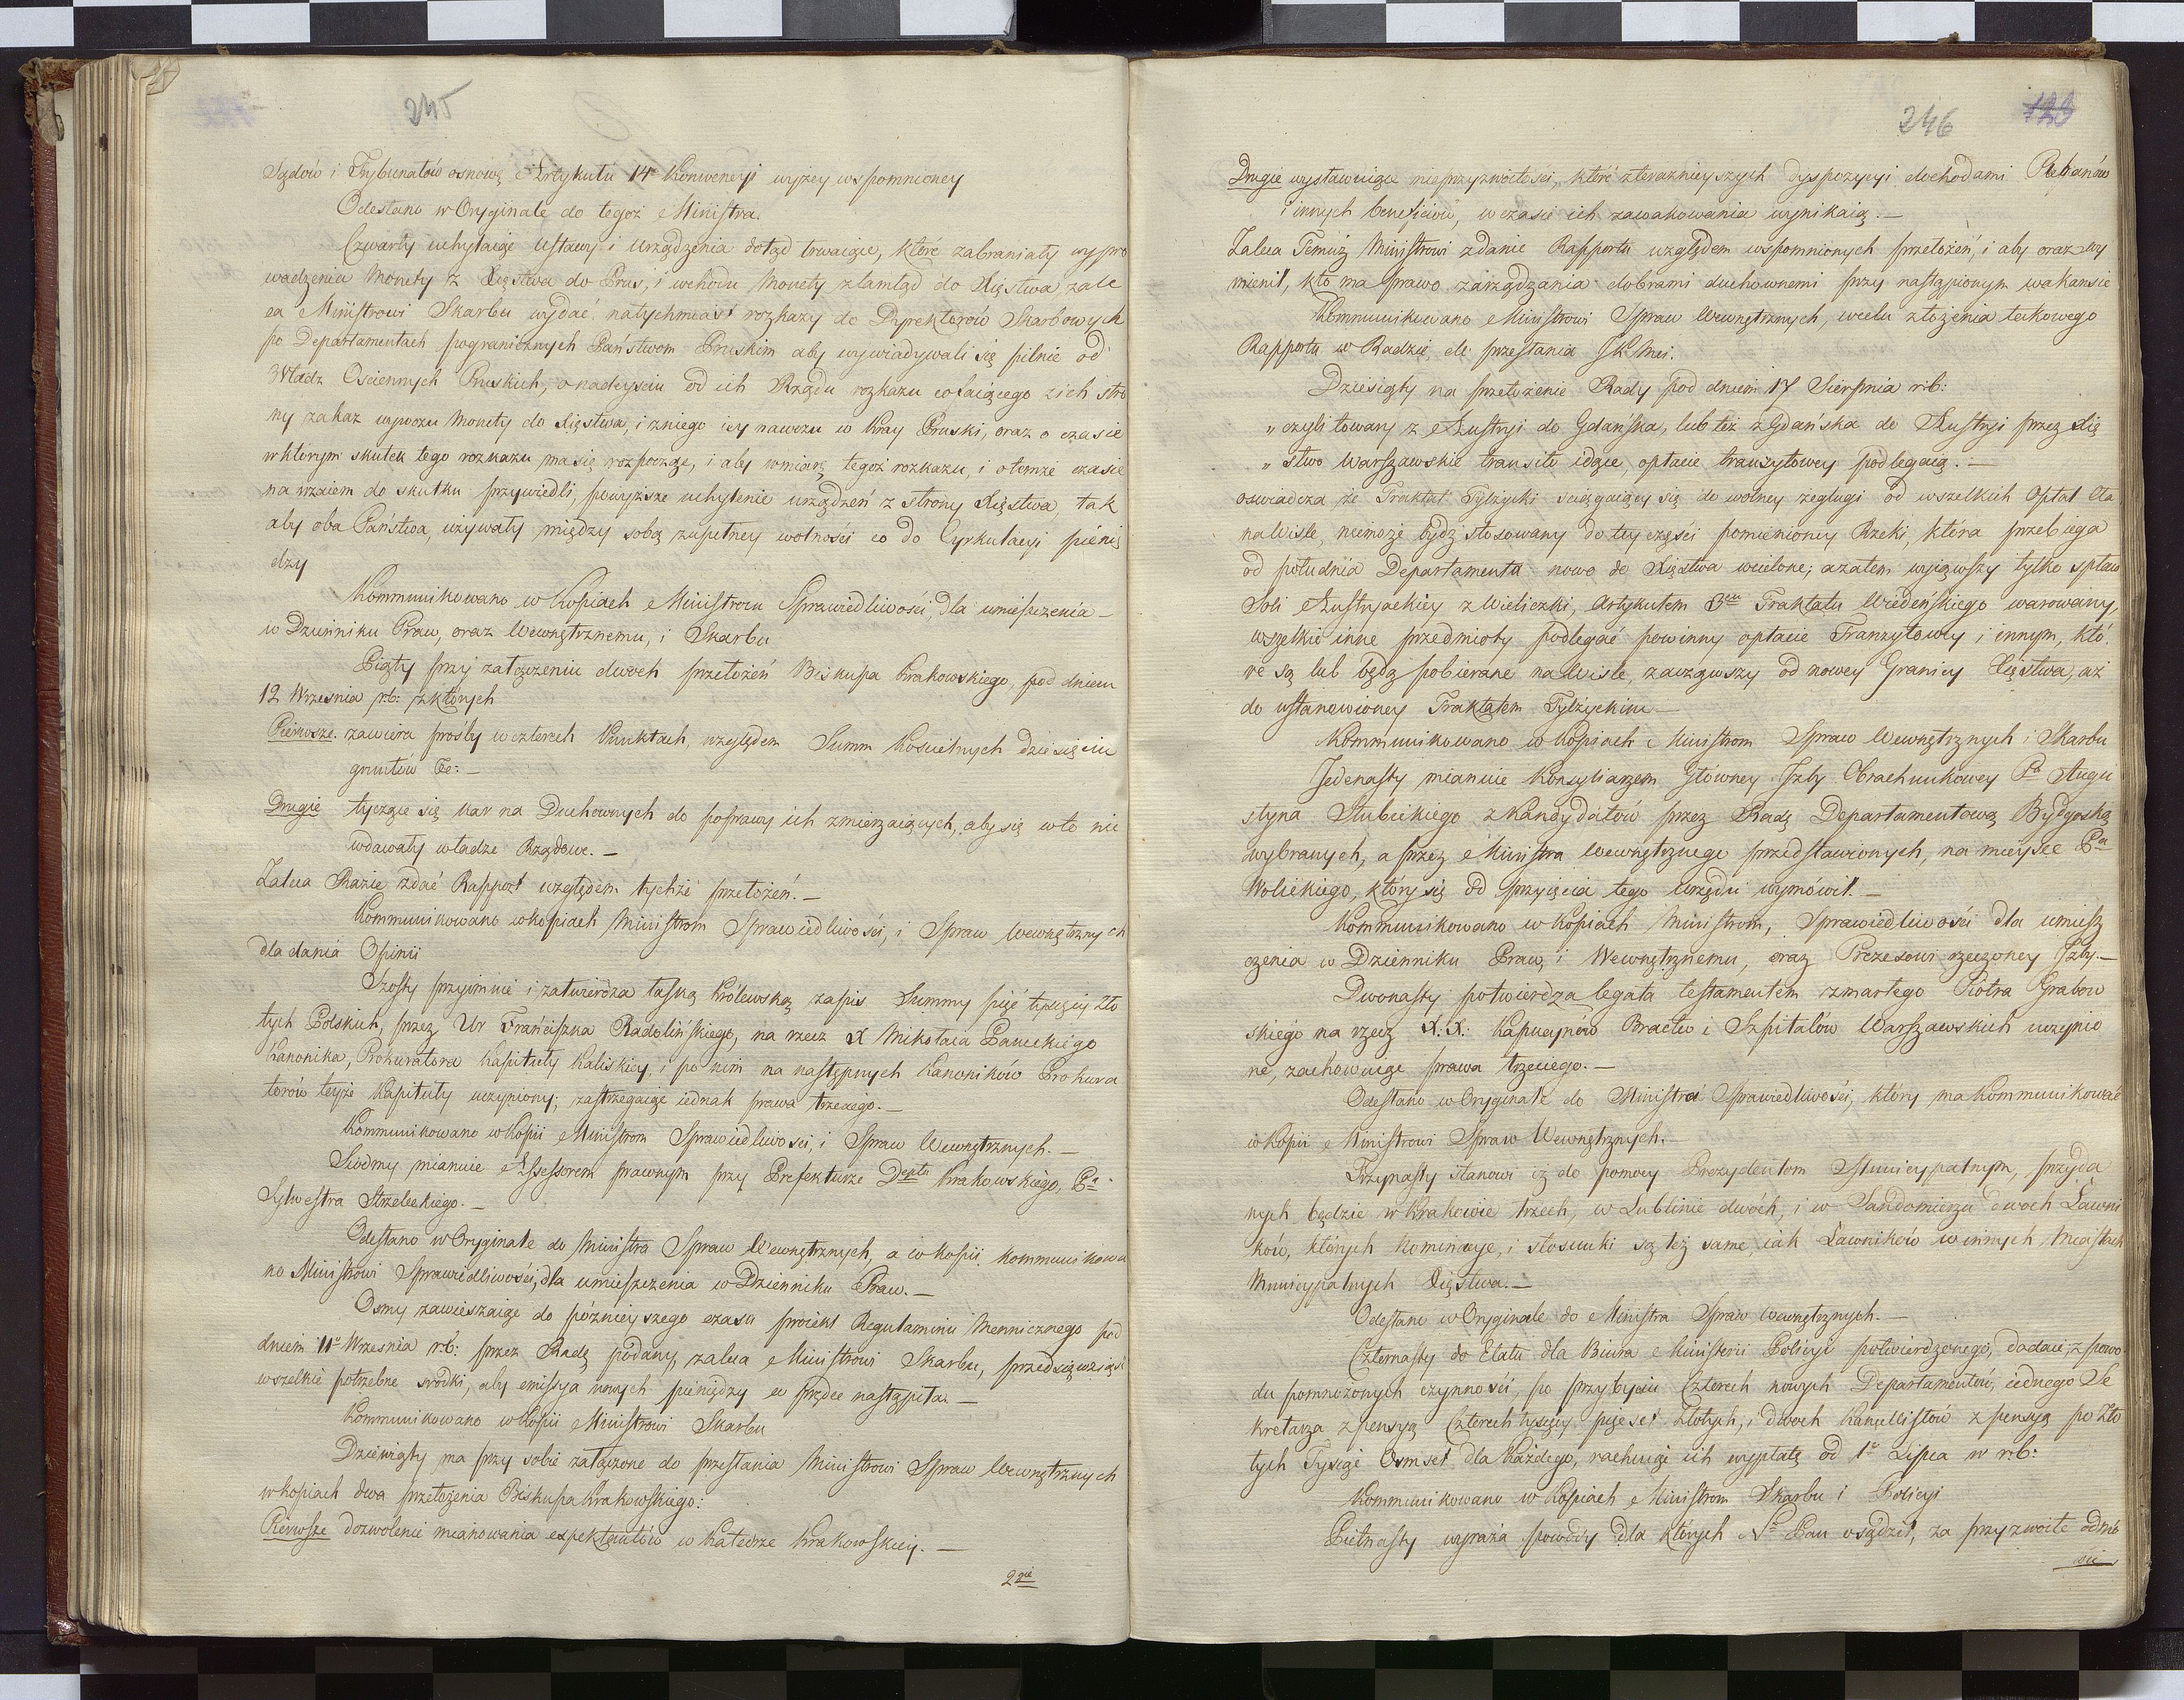 245
Sądów i Trybunałów osnową Artykułu 14º Konwencyi wyżey wspomnioney
Odesłano w Oryginale do tegoż Ministra.
Czwarty uchylaiąc ustawy i urządzenia dotąd trwaiące, które zabraniały wypro
wadzenia Monety z Xięstwa do Prus, i wchodu Monety ztamtąd do Xięstwa zale
ca Ministrowi Skarbu wydać natychmiast rozkazy do Dyrektorów Skarbowych
po Departamentach pogranicznych Państwom Pruskim aby wywiadywali się pilnie od
Władz Osciennych Pruskich, o nadeyściu od ich Rządu rozkazu cofaiącego z ich stro
ny zakaz wywozu Monety do Xięstwa, i z niego iey nawozu w Kray Pruski, oraz o czasie
w którym skutek tego rozkazu ma się rozpocząć, i aby w miarę tegoż rozkazu, i o temże czasie
na wzaiem do skutku przywiedli, powyższe uchylenie urządzeń z strony Xięstwa, tak
aby oba Państwa, używały między sobą zupełney wolności co do Cyrkulacyi pienię
dzy
Kommunikowano w Kopiach Ministrom Sprawiedliwości, dla umieszczenia
w Dzienniku Praw, oraz Wewnętrznemu, i Skarbu
Piąty przy załączeniu dwóch przełożeń Biskupa Krakowskiego, pod dniem
12 Wrzesnia r.b: z których
Pierwsze. zawiera prośby w czterech Punktach, względem Summ Kościelnych dziesięcin
gruntów &c: –
Drugie tyczące się kar na Duchownych do poprawy ich zmierzaiących, aby się w to nie
wdawały władze Rządowe. –
Zaleca Radzie zdać Rapport względem tychże przełożeń. –
Kommunikowano w kopiach Ministrom Sprawiedliwości, i Spraw Wewnętrznych
dla dania Opinii
Szosty przyimuie i zatwierdza łaską Królewską zapis Summy pięć tysięcy Zło
tych Polskich, przez Ur Franciszka Radolińskiego, na rzecz X Mikołaia Paneckiego
Kanonika, Prokuratora Kapituły Kaliskiey, i po nim na następnych Kanoników Prokura
torów teyże Kapituły uczyniony, zastrzegaiąc iednak prawa trzeciego. –
Kommunikowano w Kopii Ministrom Sprawiedliwości, i Spraw Wewnętrznych. –
Siodmy mianuie Assessorem prawnym przy Prefekturze Deptu Krakowskiego, Pa
Sylwestra Strzeleckiego. –
Odesłano w Oryginale do Ministra Spraw Wewnętrznych, a w kopii kommunikowa
no Ministrowi Sprawiedliwości, dla umieszczenia w Dzienniku Praw. –
Osmy zawieszaiąc do poźnieyszego czasu proiekt Regulaminu Mennicznego pod
dniem 11º Wrzesnia r.b: przez Radę podany, zaleca Ministrowi Skarbu, przedsięwziąść
wszelkie potrzebne srodki, aby emissya nowych pieniędzy co prędce nastąpiła. –
Kommunikowano w Kopii Ministrowi Skarbu
Dziewiąty ma przy sobie załączone do przesłania Ministrowi Spraw Wewnętrznych
w kopiach dwa przełożenia Biskupa Krakowskiego:
Pierwsze dozwolenie mianowania expektantów w Katedrze Krakowskiey. –
2gie
246 123
Drugie wystawuiące nieprzyzwoitości, które z teraznieyszych dyspozycyi dochodami Plebanów
i innych beneficiów, w czasie ich zawakowania wynikaią. –
Zaleca Temuż Ministrowi zdanie Rapportu względem wspomnionych przełożeń, i aby oraz wy
mienił, kto ma prawo zarządzania dobrami duchownemi przy nastąpionym wakansie
Kommunikowano Ministrowi Spraw Wewnętrznych, w celu złożenia takowego
Rapportu w Radzie, do przesłania JKMci.
Dziesiąty na przełożenie Rady pod dniem 17 Sierpnia r.b:
„ czyli towary z Austryi do Gdańska, lub też z Gdańska do Austryi przez Xię
„ stwo Warszawskie transito idące, opłacie tranzytowey podlegaią. –
oświadcza że Traktat Tylżycki sciągaiący się do wolney żeglugi od wszelkich Opłat Cła
na Wiśle, niemoże bydź stosowany do tey części pomienioney Rzeki, która przebiega
od południa Departamenta nowo do Xięstwa wcielone; a zatem wyiąwszy tylko spław
Soli Austryackiey z Wieliczki, Artykułem 3cim Traktatu Wiedeńskiego warowany,
wszelkie inne przedmioty podlegać powinny opłacie Tranzytowey i innym, któ
re są lub będą pobierane na Wisle, zacząwszy od nowey Granicy Xięstwa, aż
do ustanowioney Traktatem Tylżyckim –
Kommunikowano w Kopiach Ministrom Spraw Wewnętrznych i Skarbu
Jedenasty mianuie Konsyliarzem Główney Izby Obrachunkowey Pa Augu
styna Słubickiego z Kandydatów przez Radę Departamentową Bydgoską
wybranych, a przez Ministra Wewnętrznego przedstawionych, na mieysce Pa
Wolickiego, który się od przyięcia tego Urzędu wymówił. –
Kommunikowano w Kopiach Ministrom, Sprawiedliwości dla umiesz
czenia w Dzienniku Praw, i Wewnętrznemu, oraz Prezesowi rzeczoney Izby. –
Dwonasty potwierdza legata testamentem zmarłego Piotra Grabow
skiego na rzecz X.X: Kapucynów Bractw i Szpitalów Warszawskich uczynio
ne, zachowuiąc prawa trzeciego. –
Odesłano w Oryginale do Ministra Sprawiedliwości, który ma kommunikować
w Kopii Ministrowi Spraw Wewnętrznych. –
Trzynasty stanowi iż do pomocy Prezydentom Municypalnym, przyda
nych będzie w Krakowie trzech, w Lublinie dwóch, i w Sandomierzu dwoch Ławni
ków, których Nominacye, i stosunki są też same, iak Ławników w innych Miastach
Municypalnych Xięstwa. –
Odesłano w Oryginale do Ministra Spraw Wewnętrznych. –
Czternasty do Etatu dla Biura Ministerii Policyi potwierdzonego, dodaie, z powo
du pomnożonych czynności, po przybyciu Czterech nowych Departamentów, iednego Se
kretarza z pensyą Czterech tysięcy pięćset Złotych, i dwóch Kancellistów z pensyą po Zło
tych Tysiąc Osmset dla Każdego, rachuiąc ich wypłatę od 1º Lipca w r.b:
Kommunikowano w Kopiach Ministrom Skarbu i Policyi
Pietnasty wyraża powody dla których Nń Pan osądził, za przyzwoite odmó
wić